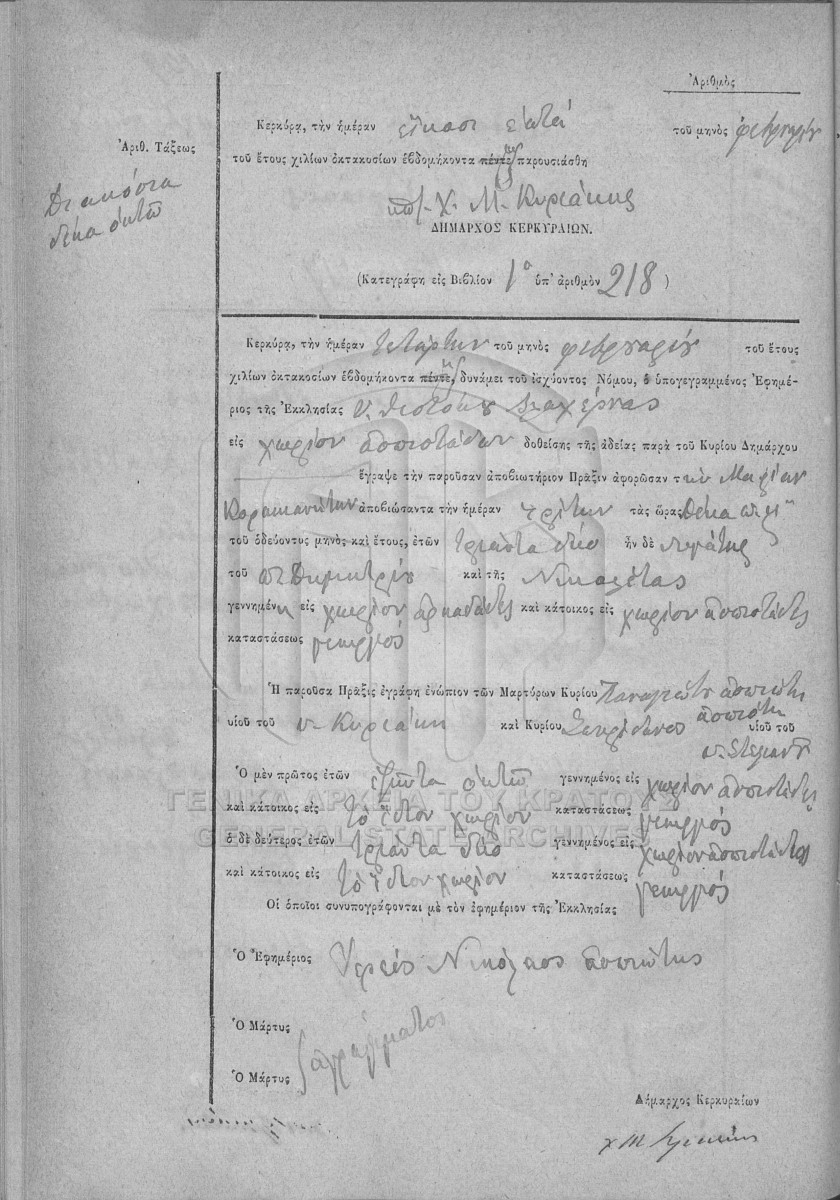 Ἀριθμὸς
Ἀριθ. Τάξεως
Διακόσια
δέκα ὀκτὼ
Κερκύρᾳ, τὴν ἡμέραν εἴκοσι ἑπτά τοῦ μηνὸς φεβρουαρίου
τοῦ ἔτους χιλίων ὀκτακοσίων ἑβδομήκοντα πέντε ἕξ παρουσιάσθη
Χ. Μ. Κυριάκης
ΔΗΜΑΡΧΟΣ ΚΕΡΚΥΡΑΙΩΝ.
(Κατεγράφη εἰς Βιβλίον 1ο ὑπ' ἀριθμὸν 218)
Κερκύρᾳ, τὴν ἡμέραν τετάρτην τοῦ μηνὸς φεβρουαρίου τοῦ ἔτους
χιλίων ὀκτακοσίων ἑβδομήκοντα πέντε, ἕξ δυνάμει τοῦ ἰσχύοντος Νόμου, ὁ ὑπογεγραμμένος Ἐφημέ-
ριος τῆς Ἐκκλησίας Υ. Θεοτόκου Βλαχέρνας
εἰς χωρίον ἀσπιοτάδων δοθείσης τῆς ἀδείας παρὰ τοῦ Κυρίου Δημάρχου
ἔγραψε τὴν παροῦσαν ἀποβιωτήριον Πρᾶξιν ἀφορῶσαν τὴν Μαρίαν
ἀποβιώσαντα τὴν ἡμέραν τρίτην τὰς ὥρας δέκα π.μ.
τοῦ ὁδεύοντος μηνὸς καὶ ἔτους, ἐτῶν τριάντα δύο ἦν δὲ
τοῦ π. Δημητρίου καὶ τῆς Νικολέτας
γεννημένη εἰς χωρίον ἀρκαδάδες καὶ κάτοικος εἰς χωρίον ἀσπιοτάδες
καταστάσεως γεωργός
Ἡ παροῦσα Πρᾶξις ἐγράφη ἐνώπιον τῶν Μαρτύρων Κυρίου Παναγιώτη ἀσπιώτη
υἱοῦ τοῦ π. Κυριάκη καὶ Κυρίου Σπυρίδωνος ἀσπιότη υἱοῦ τοῦ
π. Στελιανοῦ
Ὁ μὲν πρῶτος ἐτῶν ἑξῆντα ὀκτὼ γεννημένος εἰς χωρίον ἀσπιοτάδες
καὶ κάτοικος εἰς τὸ ἴδιον χωρίον καταστάσεως γεωργός
ὁ δὲ δεύτερος ἐτῶν τριάντα δύο γεννημένος εἰς χωρίον ἀσπιοτάδες
καὶ κάτοικος εἰς τὸ ἴδιον χωρίον καταστάσεως γεωργός
Οἱ ὁποῖοι συνυπογράφονται μὲ τὸν ἐφημέριον τῆς Ἐκκλησίας
Ὁ Ἐφημέριος Ἱερεὺς Νικόλαος ἀσπιώτης
Ὁ Μάρτυς
ἀγράμματοι
Ὁ Μάρτυς
Δήμαρχος Κερκυραίων
Χ Μ Κυριάκης
ΓΕΝΙΚΑ ΑΡΧΕΙΑ ΤΟΥ ΚΡΑΤΟΥΣ
GENERAL STATE ARCHIVES